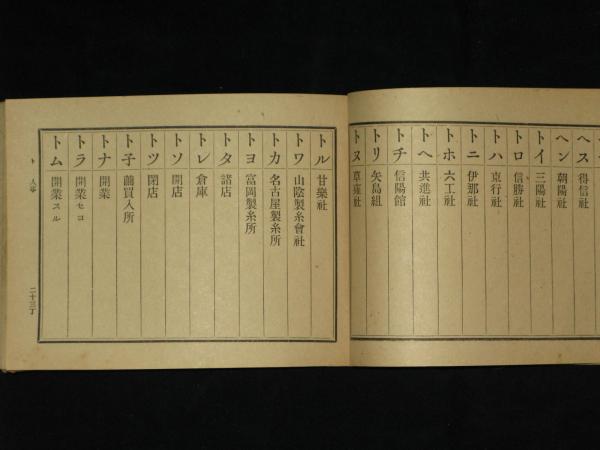 ヘス 得信社
ヘン 朝陽社
トイ 三陽社
トロ 信勝社
トハ 克行社
トニ 伊那社
トホ 六工社
トヘ 共進社
トチ 信陽館
トリ 矢島組
トヌ 草雍社
トル 甘樂社
トワ 山陰製糸會社
トカ 名古屋製糸所
トヨ 富岡製糸所
トタ 諸店
トレ 倉庫
トソ 開店
トツ 閉店
ト子 繭買入所
トナ 開業
トラ 開業セヨ
トム 開業スル
ト
二十三丁